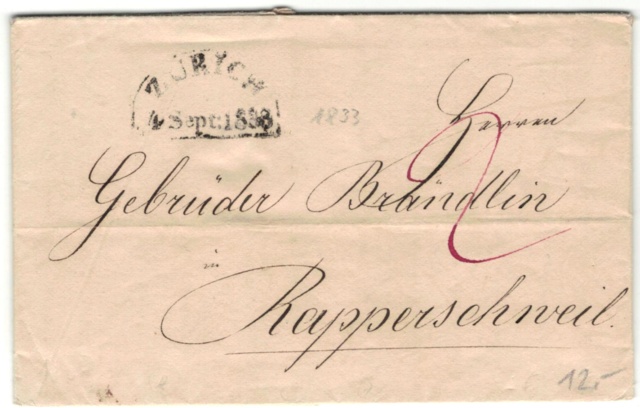 ZÜRICH
4 Sept: 1833
1833
Herren
2
Gebrüder Brändlin
in
Rapperschweil.
12.-